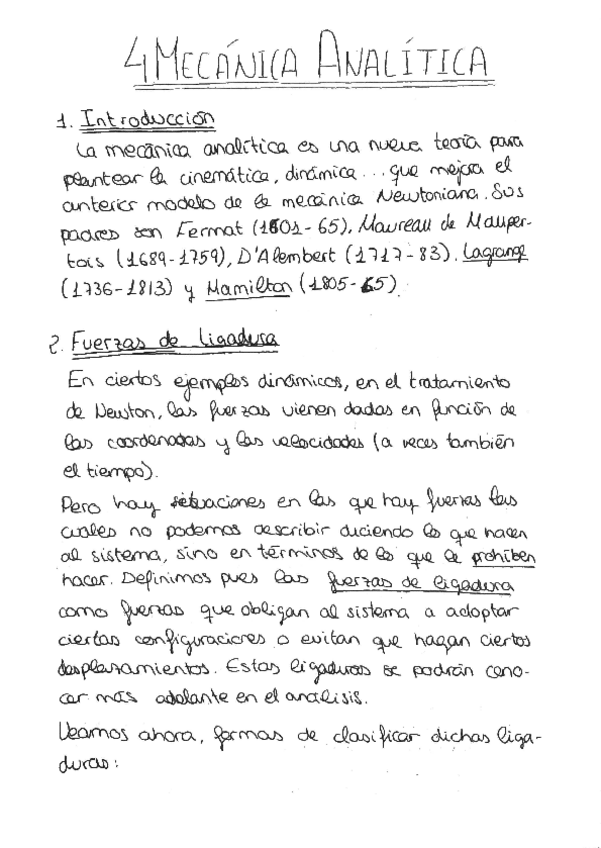 4. MECÁNICA ANALÍTICA
1. Introducción
La mecánica analítica es una nueva teoría para
plantear la cinemática, dinámica... que mejora el
anterior modelo de la mecánica Newtoniana. Sus
padres son Fermat (1601-65), Maureau de Mauper-
tois (1689-1759), D'Alembert (1717-83), Lagrange
(1736-1813) y Hamilton (1805-65).
2. Fuerzas de ligadura
En ciertos ejemplos dinámicos, en el tratamiento
de Newton, las fuerzas vienen dadas en función de
las coordenadas y las velocidades (a veces también
el tiempo).
Pero hay situaciones en las que hay fuerzas las
cuales no podemos describir diciendo lo que hacen
al sistema, sino en términos de lo que le prohiben
hacer. Definimos pues las fuerzas de ligadura
como fuerzas que obligan al sistema a adoptar
ciertas configuraciones o evitan que hagan ciertos
desplazamientos. Estas ligaduras se podrán cono-
cer más adelante en el análisis.
Veamos ahora, formas de clasificar dichas liga-
duras: